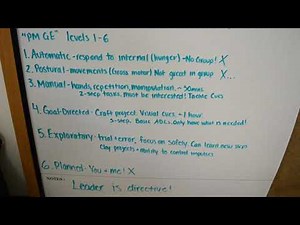 "PM GE" levels 1-6
1. Automatic - respond to internal (hunger) - No Group! X
2. Postural - movements (Gross motor) Not great in group X...
3. Manual - hands, repetition, manipulation, ~30mins
2-step tasks, must be interested! Tactile Cues
4. Goal-Directed - Craft project. Visual cues. ~1 hour
3-step. Basic ADLs. Only know what is needed!
5. Exploratory - trial + error, focus on Safety. Can learn new skill
Clay projects + Ability to control impulses
6. Planned - You + me! X
Leader is directive!